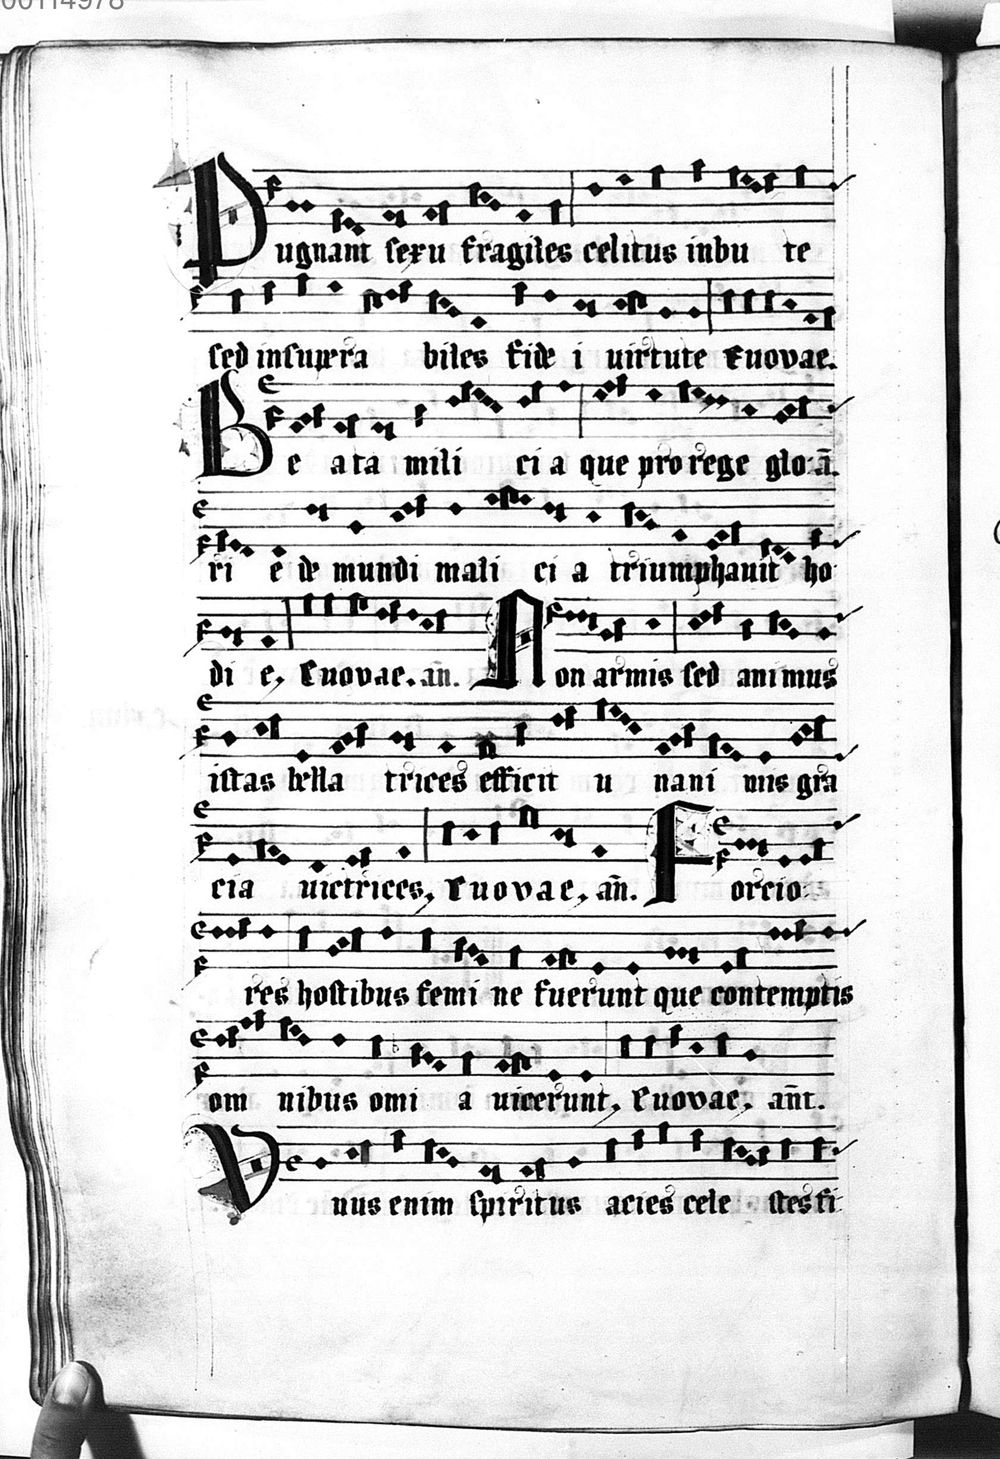 00114978
Pugnant sexu fragiles celitus inbu te
sed insupera biles fide i uirtute Euovae.
Be ata mili ci a que pro rege gloã.
ri e de mundi mali ci a triumphauit ho
di e, Euovae. añ. Non armis sed animus
istas bella trices efficit u nani mis gra
cia uictrices, Euovae, añ. Forcio
res hostibus femi ne fuerunt que contemptis
om nibus omi a uicerunt, Euovae, añt.
Unus enim spiritus acies cele stes fi